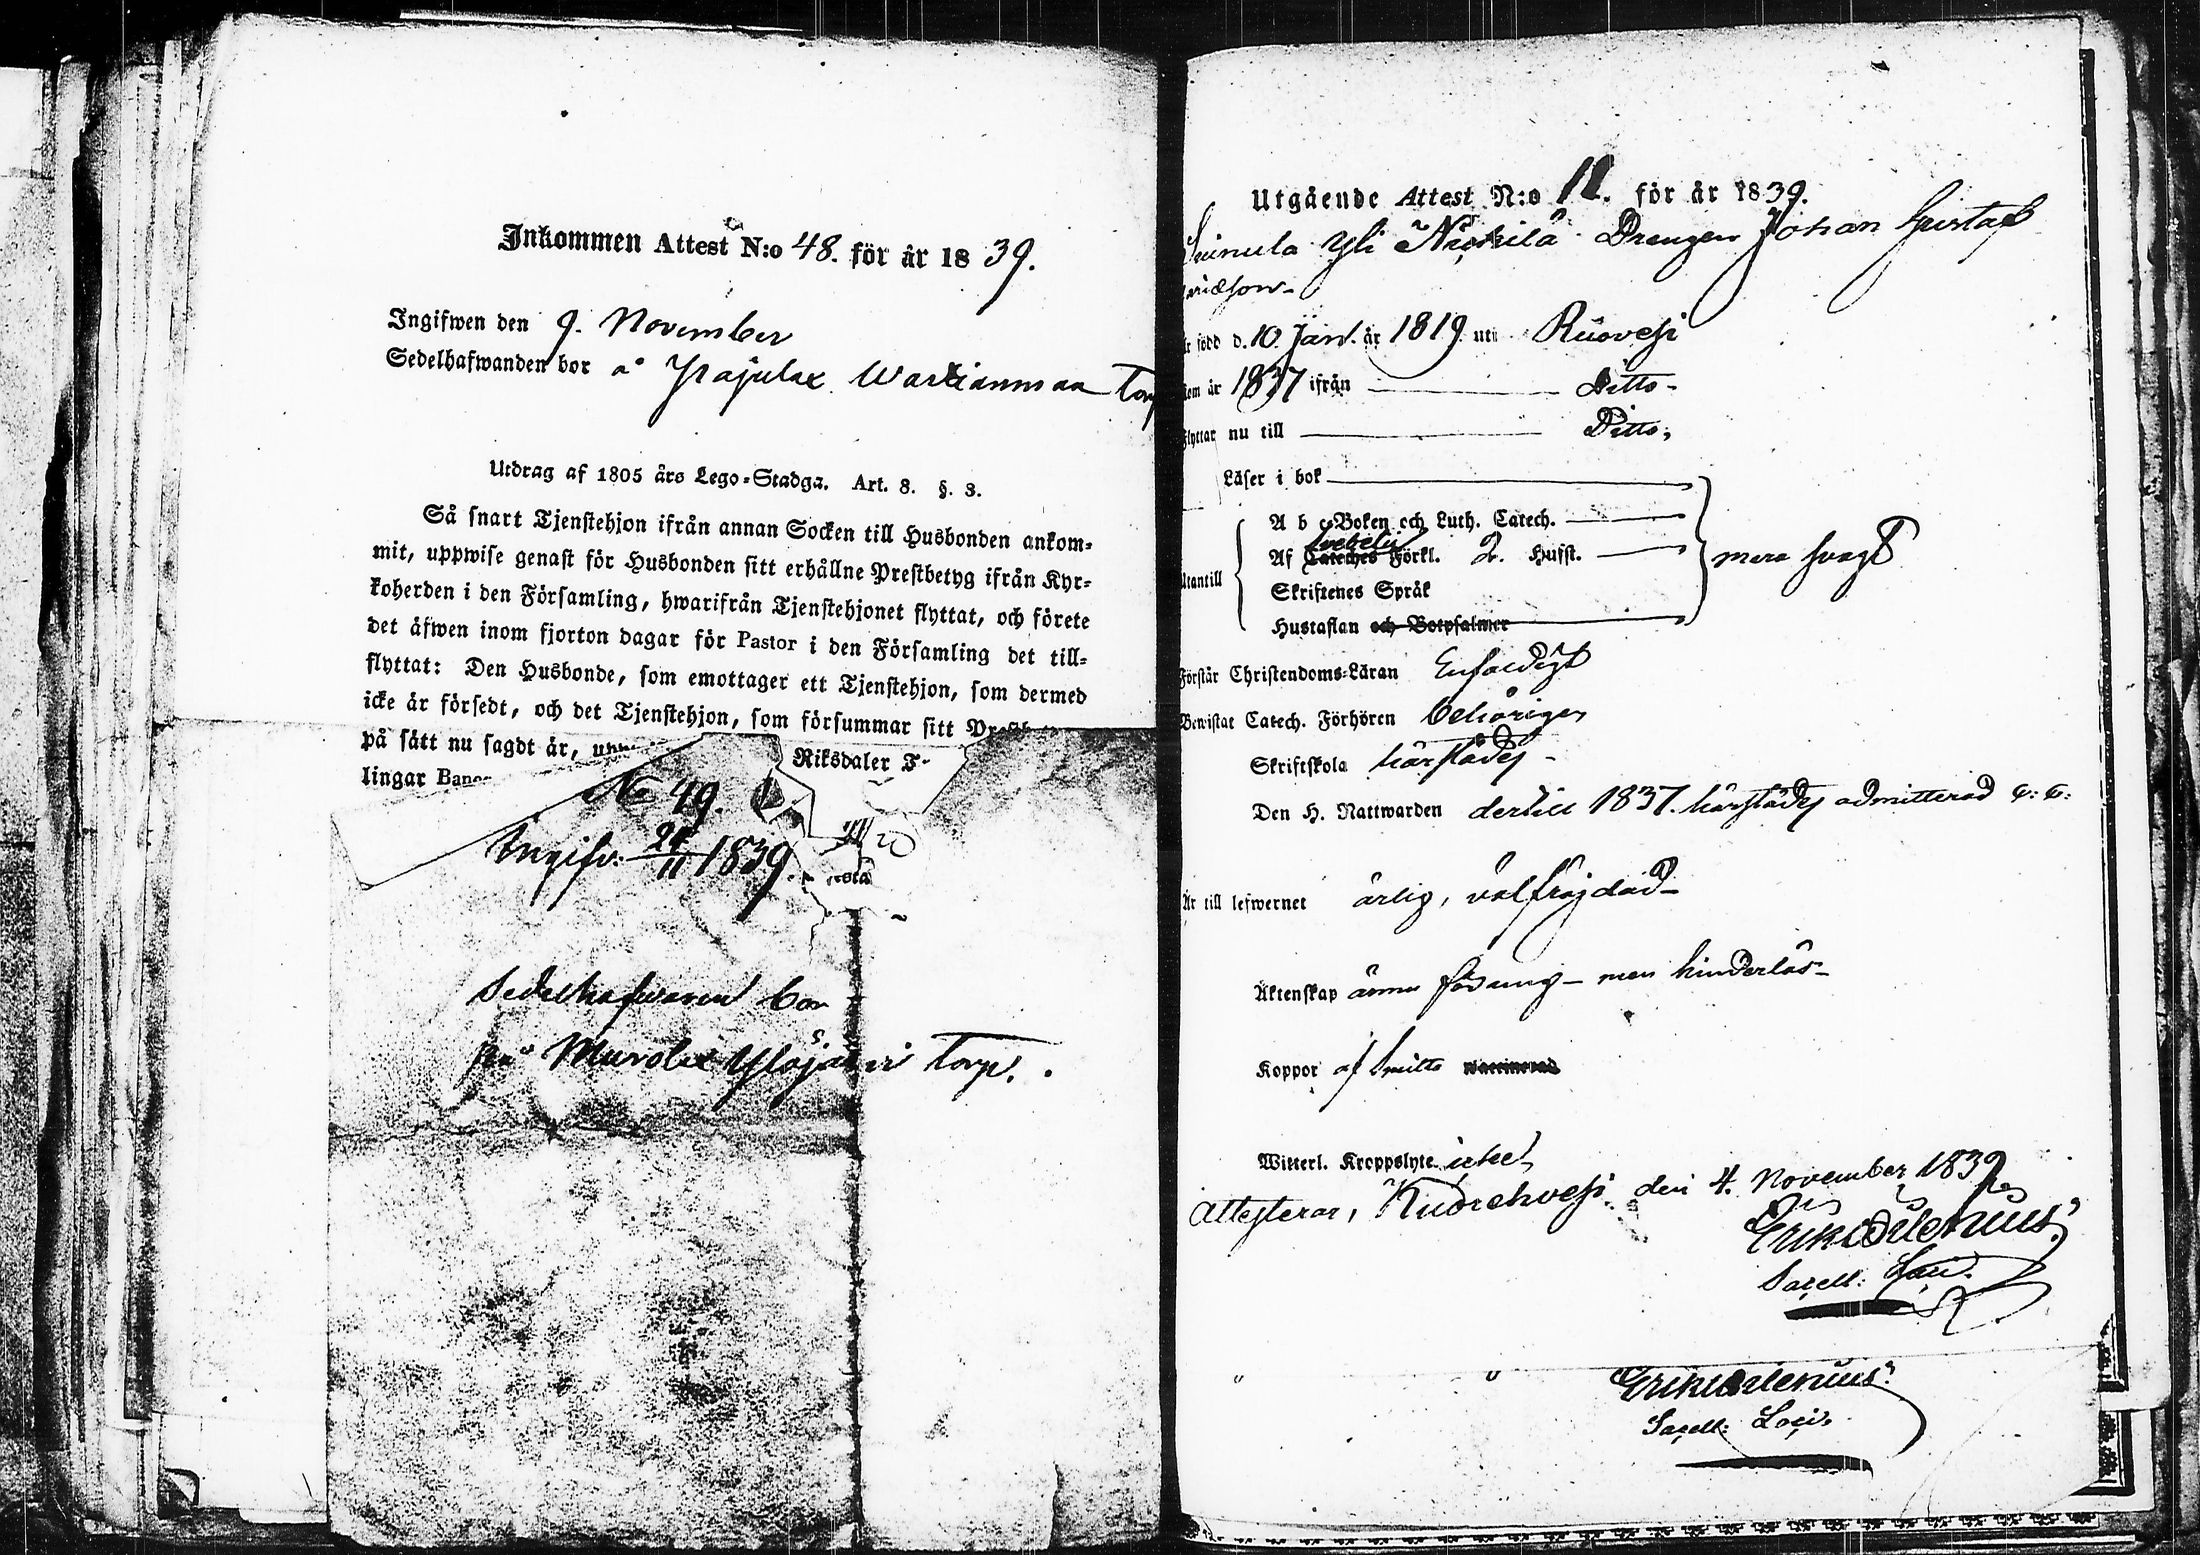 Inkommen Attest N:o 48. för år 1839.
Ingifwen den 9. November
Sedelhafwanden bor å Ylajulax Torp
Utdrag af 1805 års Lego-Stadga. Art. 8. §. 3.
Så snart Tjenstehjon ifrån annan Socken till Husbonden ankom-
mit, uppwise genast för Husbonden sitt erhållne Prestbetyg ifrån Kyr-
koherden i den Församling, hwarifrån Tjenstehjonet flyttat, och förete
det äfwen inom fjorton dagar för Pastor i den Församling det till-
flyttat: Den Husbonde, som emottager ett Tjenstehjon, som dermed
icke är försedt, och det Tjenstehjon, som försummar sitt
på sätt nu sagdt är,
lingar
Riksdaler
No 49.
Ingifv: 24/11 1839.
Sedelhafwaren bor
på Murole Ylöjärvi Torp.
Utgående Attest N:o 11. för år 1839.
Yli Drengen Johan Gustaf
född d. 10 Jan. år 1819 uti Ruovesi
år 1837 ifrån Ditto
flyttar nu till Ditto
Läser i bok
Utantill
A b c-Boken och Luth. Catech.
Svebelii
Af Cateches Förkl. 2. Hufst.
mera svagt
Skriftenes Språk
Hustaflan och Botpsalmer
Förstår Christendoms-Läran Enfaldigt
Bewistat Catech. Förhören behörigen
Skriftskola härstädes
Den H. Nattwarden dertill 1837. härstädes admitterad
Är till lefwernet ärlig, välfräjdad
Äktenskap ännu men hinderlös
Koppor af smitta waccinerad
Witterl. Kroppslyte icke
Attesterar, Kuorehvesi den 4. November 1839
Sacell: Loci.
Sacell: Loci.